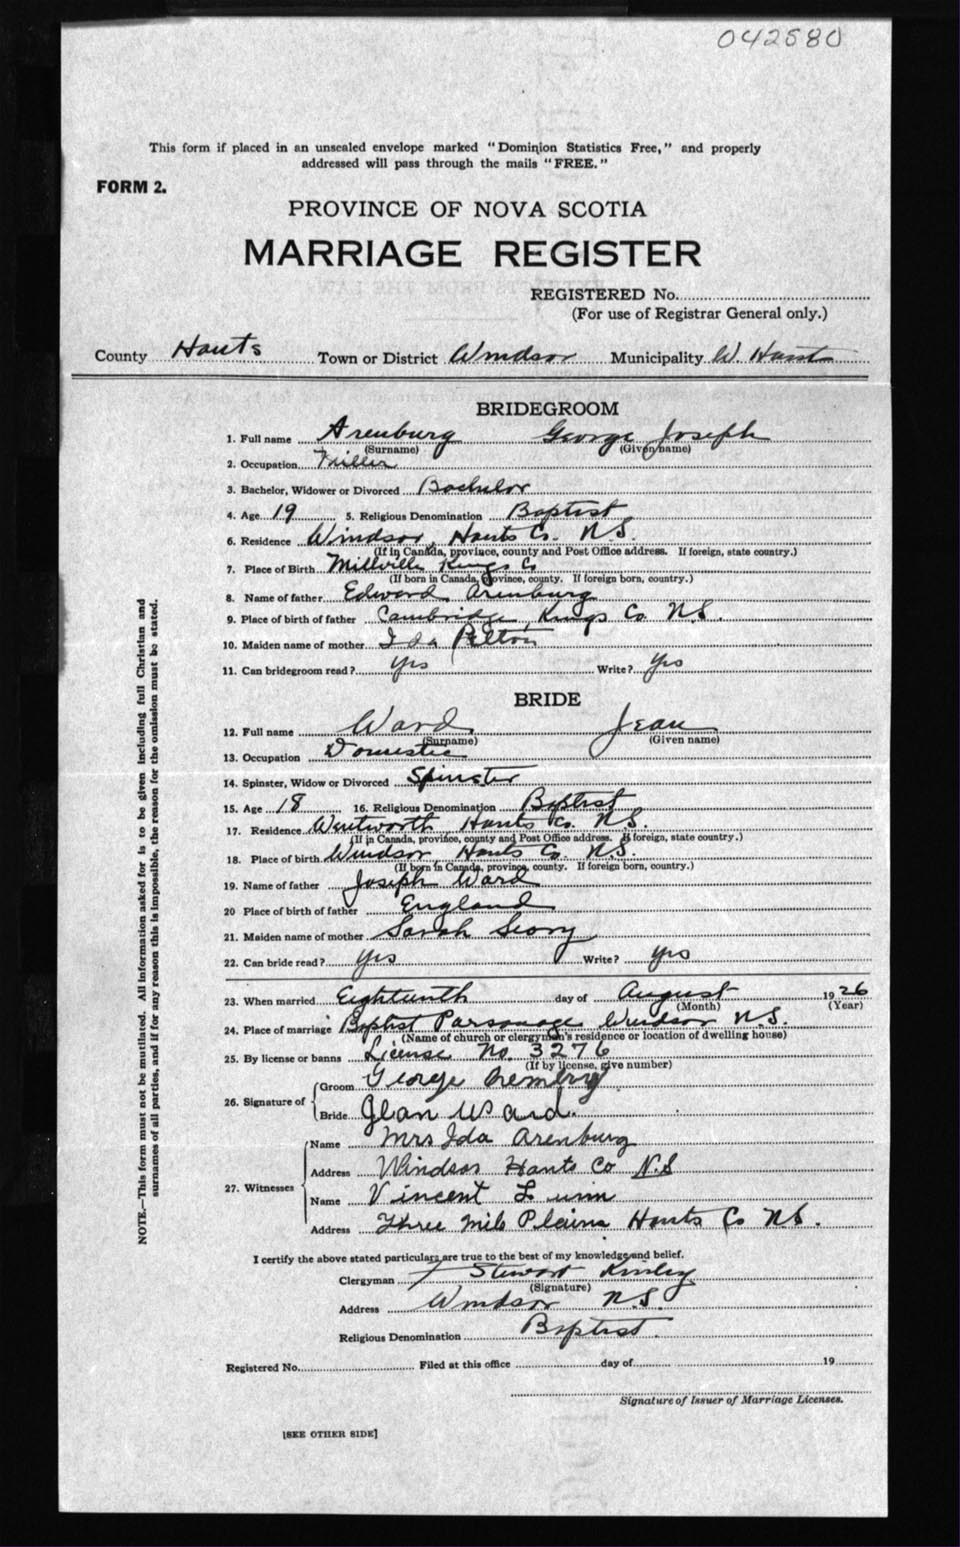 042580
This form if placed in an unsealed envelope marked "Dominion Statistics Free," and properly
addressed will pass through the mails "FREE."
FORM 2.
PROVINCE OF NOVA SCOTIA
MARRIAGE REGISTER
REGISTERED No.
(For use of Registrar General only.)
County Hants Town or District Windsor Municipality W. Hants
BRIDEGROOM
1. Full name Arenburg George Joseph
(Surname) (Given name)
2. Occupation
3. Bachelor, Widower or Divorced Bachelor
4. Age 19 5. Religious Denomination Baptist
6. Residence Windsor, Hants Co. N.S.
(If in Canada, province, county and Post Office address. If foreign, state country.)
7. Place of Birth Millville Kings Co
(If born in Canada, province, county. If foreign born, country.)
8. Name of father Edward Arenburg
9. Place of birth of father Cambridge, Kings Co. N.S.
10. Maiden name of mother Ida Pelton
11. Can bridegroom read? Yes Write? Yes
BRIDE
12. Full name Ward Jean
(Surname) (Given name)
13. Occupation Domestic
14. Spinster, Widow or Divorced Spinster
15. Age 18 16. Religious Denomination Baptist
17. Residence Wentworth, Hants Co. N.S.
(If in Canada, province, county and Post Office address. If foreign, state country.)
18. Place of birth Windsor, Hants Co. N.S.
(If born in Canada, province, county. If foreign born, country.)
19. Name of father Joseph Ward
20 Place of birth of father England
21. Maiden name of mother Sarah
22. Can bride read? Yes Write? Yes
23. When married Eighteenth day of August 1926
(Month) (Year)
24. Place of marriage Baptist Parsonage Windsor N.S.
(Name of church or clergyman's residence or location of dwelling house)
25. By license or banns License No. 3276
(If by license, give number)
26. Signature of
Groom George
Bride Jean Ward.
27. Witnesses
Name Mrs Ida Arenburg
Address Windsor Hants Co N.S
Name Vincent
Address Three Mile Plains Hants Co N.S.
I certify the above stated particulars are true to the best of my knowledge and belief.
Clergyman Stewart Kinley
(Signature)
Address Windsor N.S.
Religious Denomination Baptist.
Registered No. Filed at this office day of 19
Signature of Issuer of Marriage Licenses.
[SEE OTHER SIDE]
NOTE.—This form must not be mutilated. All information asked for is to be given including full Christian and
surnames of all parties, and if for any reason this is impossible, the reason for the omission must be stated.